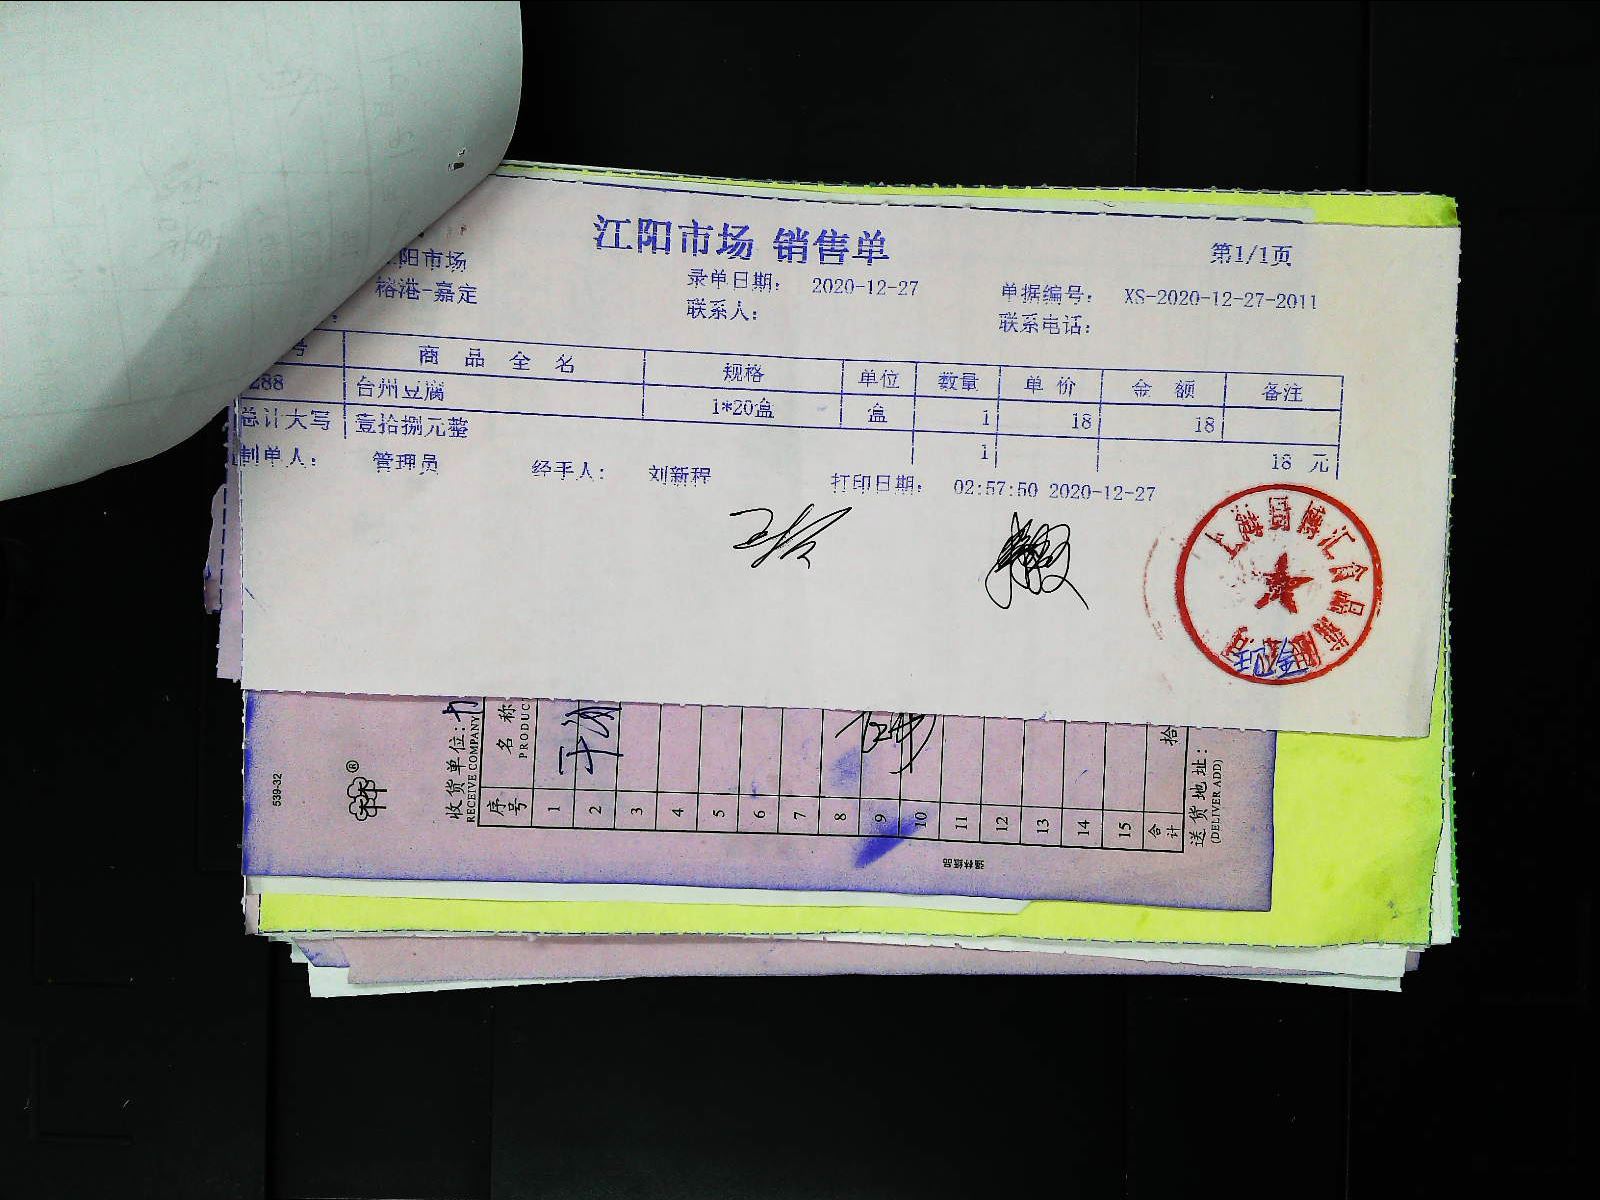 江阳市场 销售单
第1/1页
阳市场
榕港-嘉定
录单日期: 2020-12-27
单据编号: XS-2020-12-27-2011
联系人:
联系电话:
号 商品全名 规格 单位 数量 单价 金额 备注
288 台州豆腐 1*20盒 盒 1 18 18
总计大写 壹拾捌元整 1 18 元
制单人: 管理员 经手人: 刘新程 打印日期: 02:57:50 2020-12-27
上海
博汇食品
现金
539-32
收货单位:
RECEIVE COMPANY
序号
名称
PRODUC
1
2
3
4
5
6
7
8
9
10
11
12
13
14
15
合计
拾
送货地址:
(DELIVER ADD)